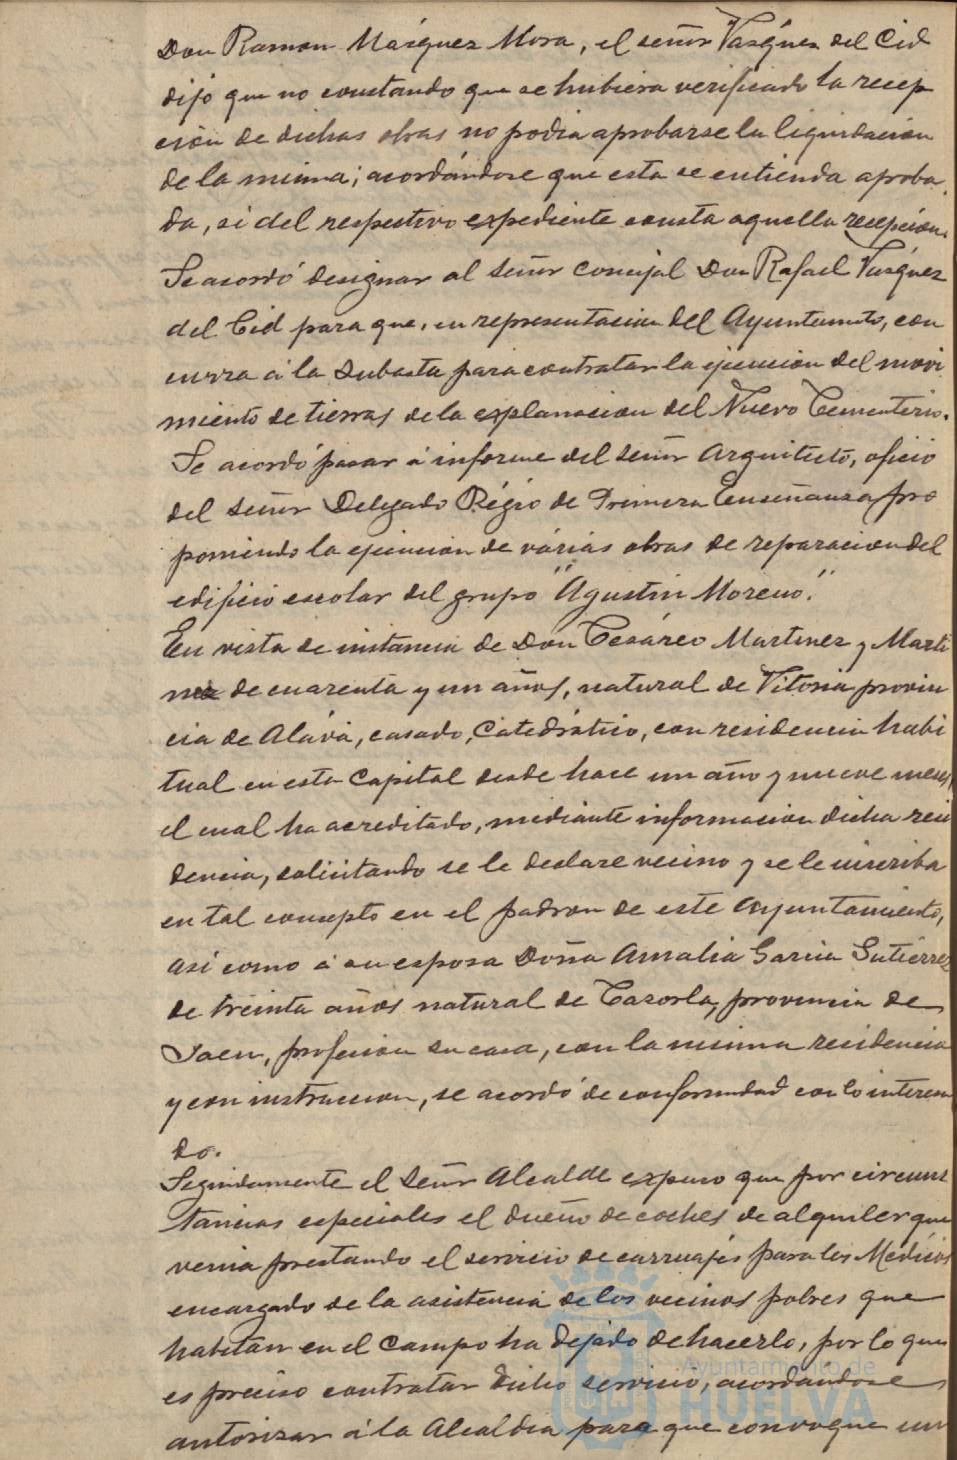 Don Ramon Márquez Mora, el señor Vazquez del Cid
dijó que no constando que se hubiera verificado la recep
ción de dichas obras no podia aprobarse la liquidacion
de la misma; acordándose que esta se entienda aproba
da, si del respectivo expediente consta aquella recepcion.
Se acordó designar al señor concejal Don Rafael Vazquez
del Cid para que, en representacion del Ayuntamto, con
curra á la Subasta para contratar la ejecucion del movi
miento de tierras de la explanacion del Nuevo Cementerio.
Se acordó pasar á informe del señor Arquitecto, oficio
del Señor Delegado Régio de Primera Enseñanza pro
poniendo la ejecucion de várias obras de reparacion del
edificio escolar del grupo "Agustin Moreno".
En vista de instancia de Don Cesáreo Martinez y Marti
nez de cuarenta y un años, natural de Vitoria provin
cia de Alava, casado, Catedrático, con residencia habi
tual en esta Capital desde hace un año y nueve meses,
el cual ha acreditado, mediante informacion dicha resi
dencia, solicitando se le declare vecino y se le inscriba
en tal concepto en el padron de este Ayuntamiento,
asi como á su esposa Doña Amalia Garcia Gutiérrez
de treinta años natural de Cazorla, provincia de
Jaen, profesion su casa, con la misma residencia
y con instruccion, se acordó de conformidad con lo interesa
do.
Seguidamente el Señor Alcalde expuso que por circuns
tancias especiales el dueño de coches de alquiler que
venia prestando el servicio de carruajes para los Médicos
encargado de la asistencia de los vecinos pobres que
habitan en el Campo ha dejado de hacerlo, por lo que
es preciso contratar dicho servicio, acordandose
autorizar á la Alcaldia para que convoque un
Ayuntamiento de
HUELVA